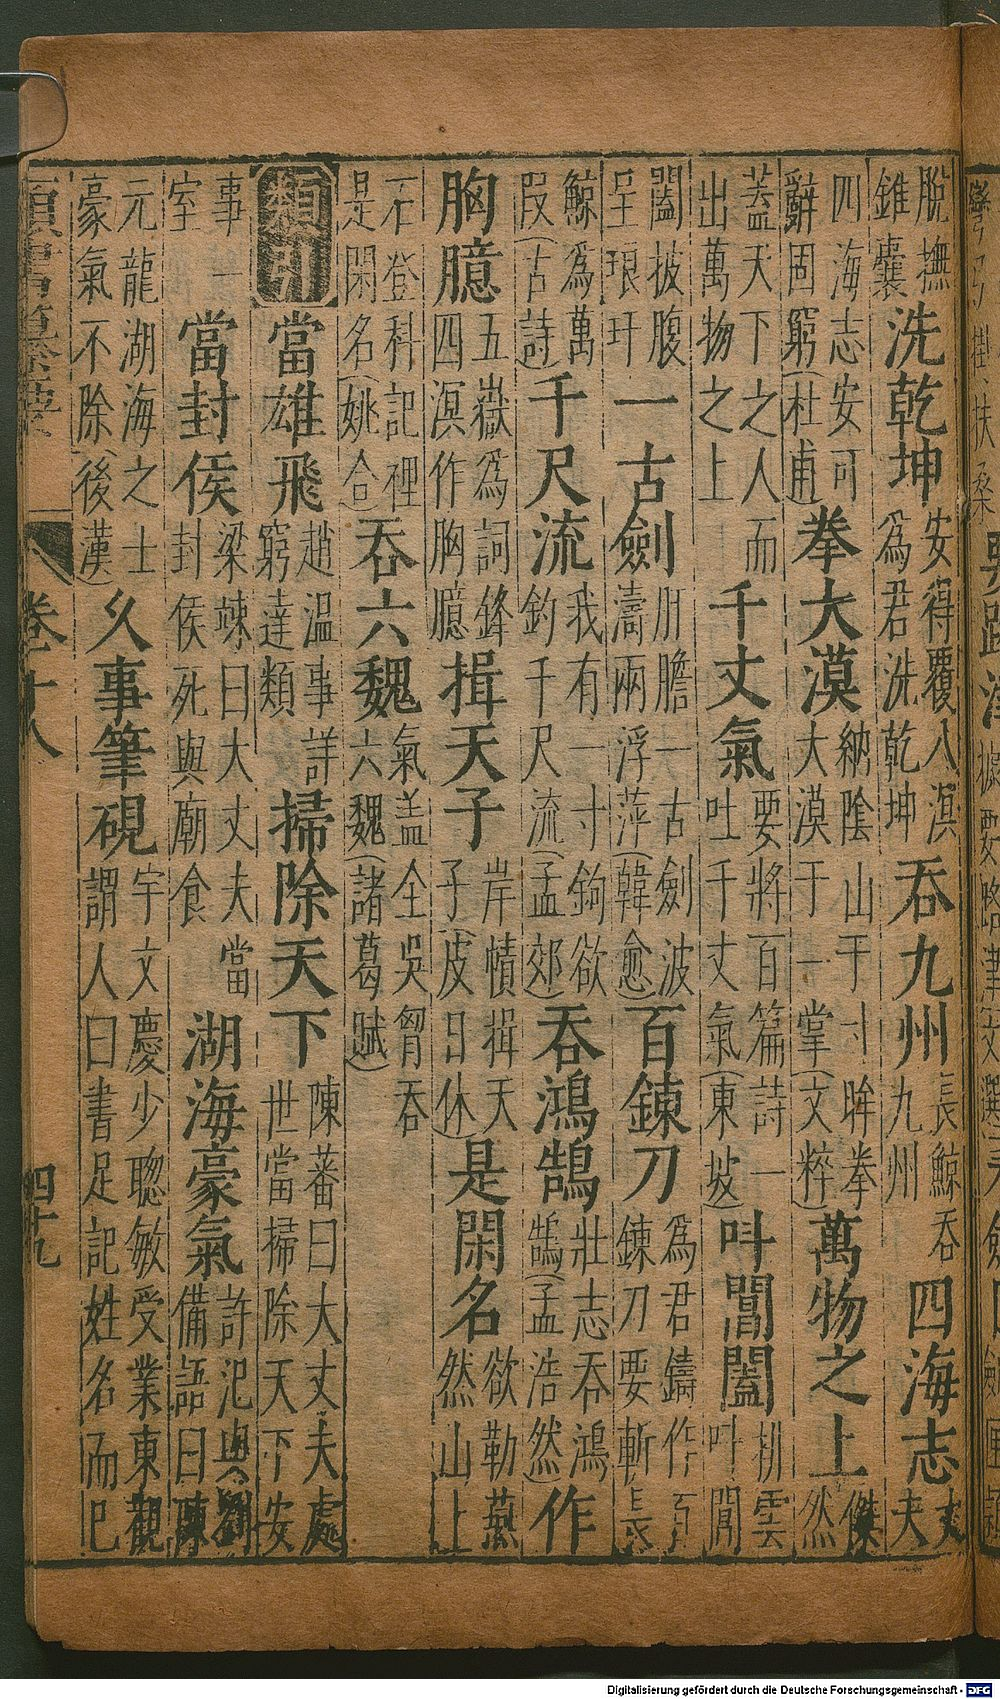 脫撫
錐囊
洗乾坤
安得覆八溟
為君洗乾坤
吞九州
長鯨吞
九州
四海志
丈
夫
四海志安可
辭固窮(杜甫)
拳大漠
納陰山于寸眸拳
大漠于一掌(文粹)
萬物之上
傑
然
蓋天下之人而
出萬物之上
千丈氣
要將百篇詩一
吐千丈氣(東坡)
叫閶闔
排雲
叫閶
闔披腹
呈琅玕
一古劍
肝膽一古劍波
濤兩浮萍(韓愈)
百鍊刀
為君鑄作百
鍊刀要斬長
鯨為萬
段(古詩)
千尺流
我有一寸鉤欲
釣千尺流(孟郊)
吞鴻鵠
壯志吞鴻
鵠(孟浩然)
作
胸臆
五嶽為詞鋒
四溟作胸臆
揖天子
岸幘揖天
子(皮日休)
是閑名
欲勒燕
然山上
石登科記裡
是閑名(姚合)
吞六魏
氣蓋全吳胷吞
六魏(諸葛賦)
類引
當雄飛
趙溫事詳
窮達類
掃除天下
陳蕃曰大丈夫處
世當掃除天下安
事一
室
當封侯
梁竦曰大丈夫當
封侯死與廟食
湖海豪氣
許汜與劉
備語曰陳
元龍湖海之士
豪氣不除(後漢)
久事筆硯
宇文慶少聰敏受業東觀
謂人曰書足記姓名而已
卷十八
四十九